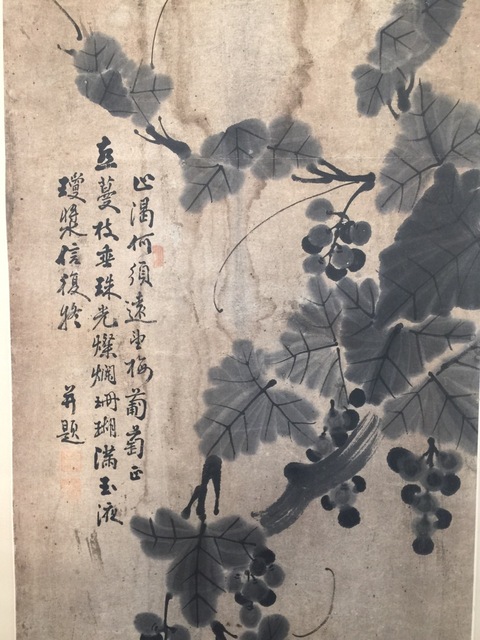 止渴何須遠望梅葡萄正
蔓枝垂珠光燦爛珊瑚滿玉液
瓊漿信復
并題